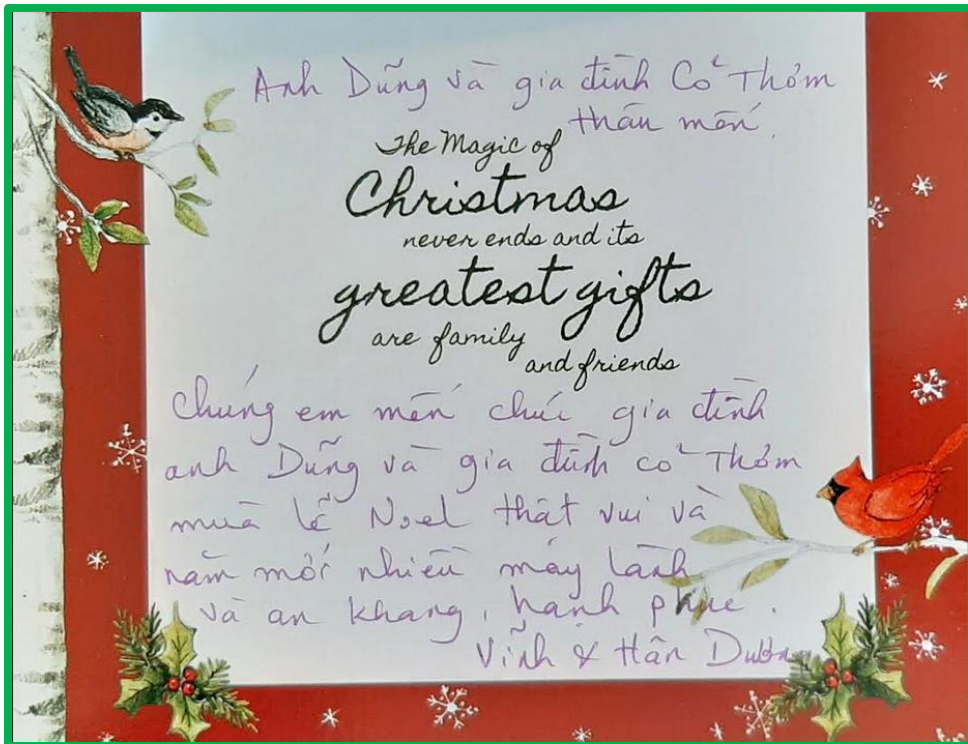 Anh Dũng và gia đình Cô Thơm
thân mến.
The Magic of
Christmas
never ends and its
greatest gifts
are family
and friends
Chúng em mến chúc gia đình
anh Dũng và gia đình cô Thơm
mùa lễ Noel thật vui và
năm mới nhiều may lành
và an khang, hạnh phúc.
Vĩnh & Hân Dươn